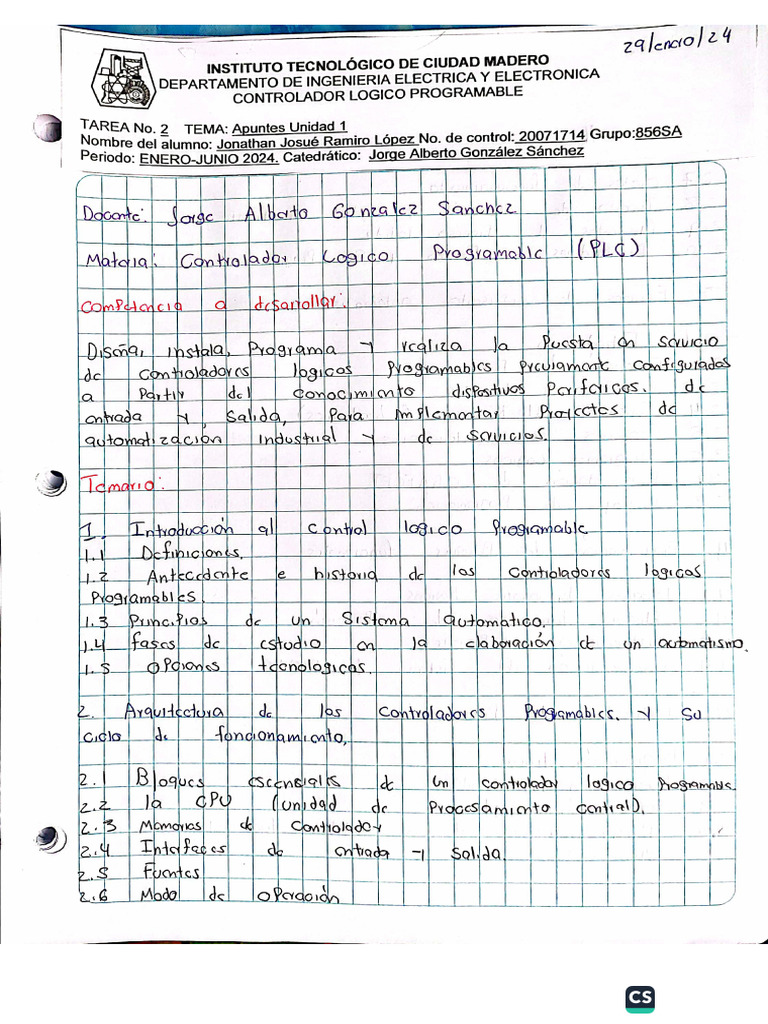 29/enero/24
INSTITUTO TECNOLÓGICO DE CIUDAD MADERO
DEPARTAMENTO DE INGENIERIA ELECTRICA Y ELECTRONICA
CONTROLADOR LOGICO PROGRAMABLE
TAREA No. 2 TEMA: Apuntes Unidad 1
Nombre del alumno: Jonathan Josué Ramiro López No. de control: 20071714 Grupo:856SA
Periodo: ENERO-JUNIO 2024. Catedrático: Jorge Alberto González Sánchez
Docente: Jorge Alberto Gonzalez Sanchez
Materia: Controlador Logico Programable (PLC)
Competencia a desarrollar:
Diseña, instala, Programa y realiza la Puesta en servicio
de controladores logicos Programables Previamente configurados
a Partir del conocimiento dispositivos Perifericos. de
entrada y, Salida, Para implementar Proyectos de
automatización industrial y de servicios.
Temario:
1. Introducción al control logico Programable
1.1 Definiciones.
1.2 Antecedente e historia de los controladores logicos
Programables.
1.3 Principios de un Sistema automático.
1.4 fases de estudio en la elaboración de un automatismo.
1.5 Opciones tecnologicas.
2. Arquitectura de los controladores Programables. y su
ciclo de funcionamiento,
2.1 Bloques esenciales de un controlador logico Programable
2.2 la CPU (unidad de Procesamiento central).
2.3 Memorias de Controlador
2.4 Interfaces de entrada y Salida.
2.5 Fuentes
2.6 Modo de operación
CS